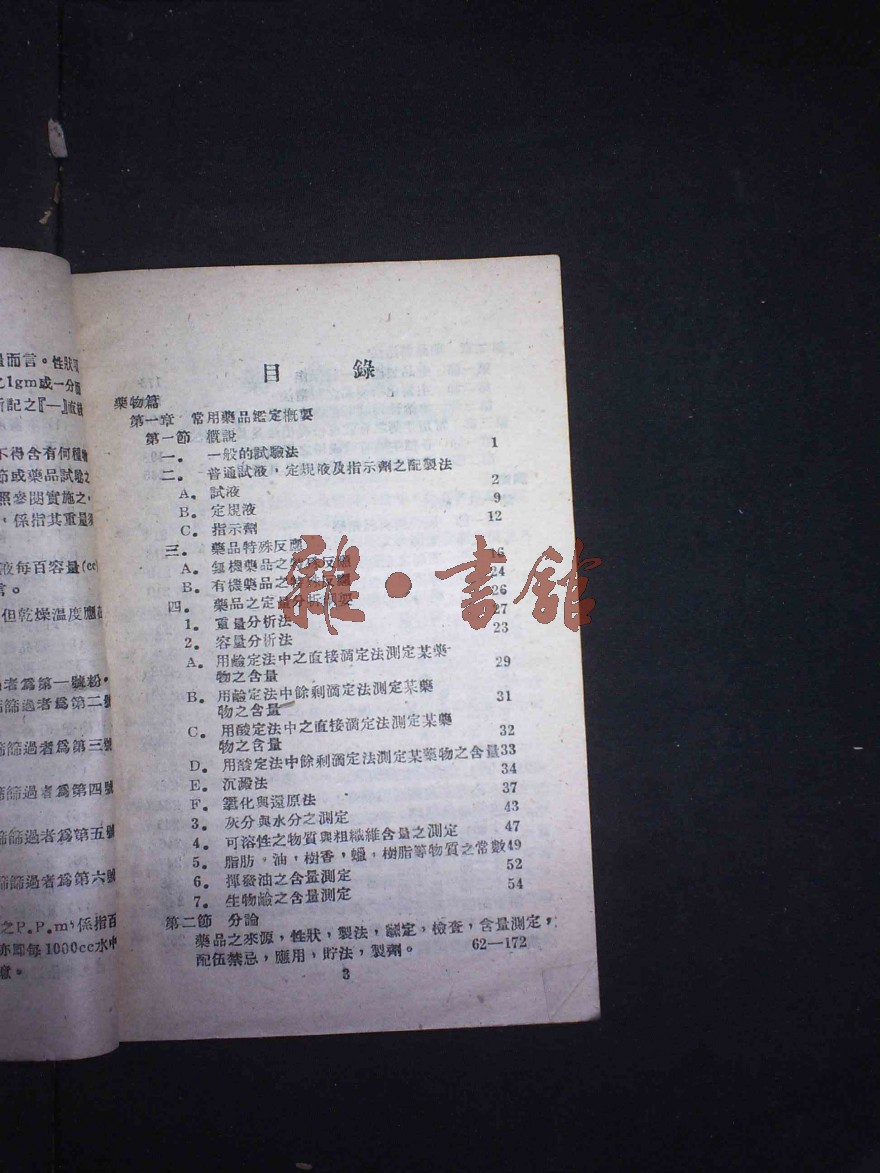 量而言。性狀項
之1gm或一分而
所記之『—』直接
不得含有何種物
節或藥品試驗之
照參閱實施之,
,係指其重量須
液每百容量(cc)
言。
但乾燥溫度應
過者爲第一號粉,
篩篩過者爲第二號
篩篩過者爲第三號
篩篩過者爲第四號
篩篩過者爲第五號
篩篩過者爲第六號
之P.P.m係指百
亦即每1000cc水中
意。
目 錄
藥物篇
第一章 常用藥品鑑定概要
第一節 概說
一。 一般的試驗法 1
二。 普通試液,定規液及指示劑之配製法
A。 試液 2
B。 定規液 9
C。 指示劑 12
三。 藥品特殊反應
A。 無機藥品之特殊反應 16
B。 有機藥品之特殊反應 24
四。 藥品之定量分析概要 26
1。 重量分析法 27
2。 容量分析法 23
A。 用鹼定法中之直接滴定法測定某藥
物之含量 29
B。 用鹼定法中餘剩滴定法測定某藥
物之含量 31
C。 用酸定法中之直接滴定法測定某藥
物之含量 32
D。 用酸定法中餘剩滴定法測定某藥物之含量33
E。 沉澱法 34
F。 氧化與還原法 37
3。 灰分與水分之測定 43
4。 可溶性之物質與粗纖維含量之測定 47
5。 脂肪。油,樹香,蠟,樹脂等物質之常數49
6。 揮發油之含量測定 52
7。 生物鹼之含量測定 54
第二節 分論
藥品之來源,性狀,製法,鑑定,檢查,含量測定,
配伍禁忌,應用,貯法,製劑。 62—172
3
雅·書館